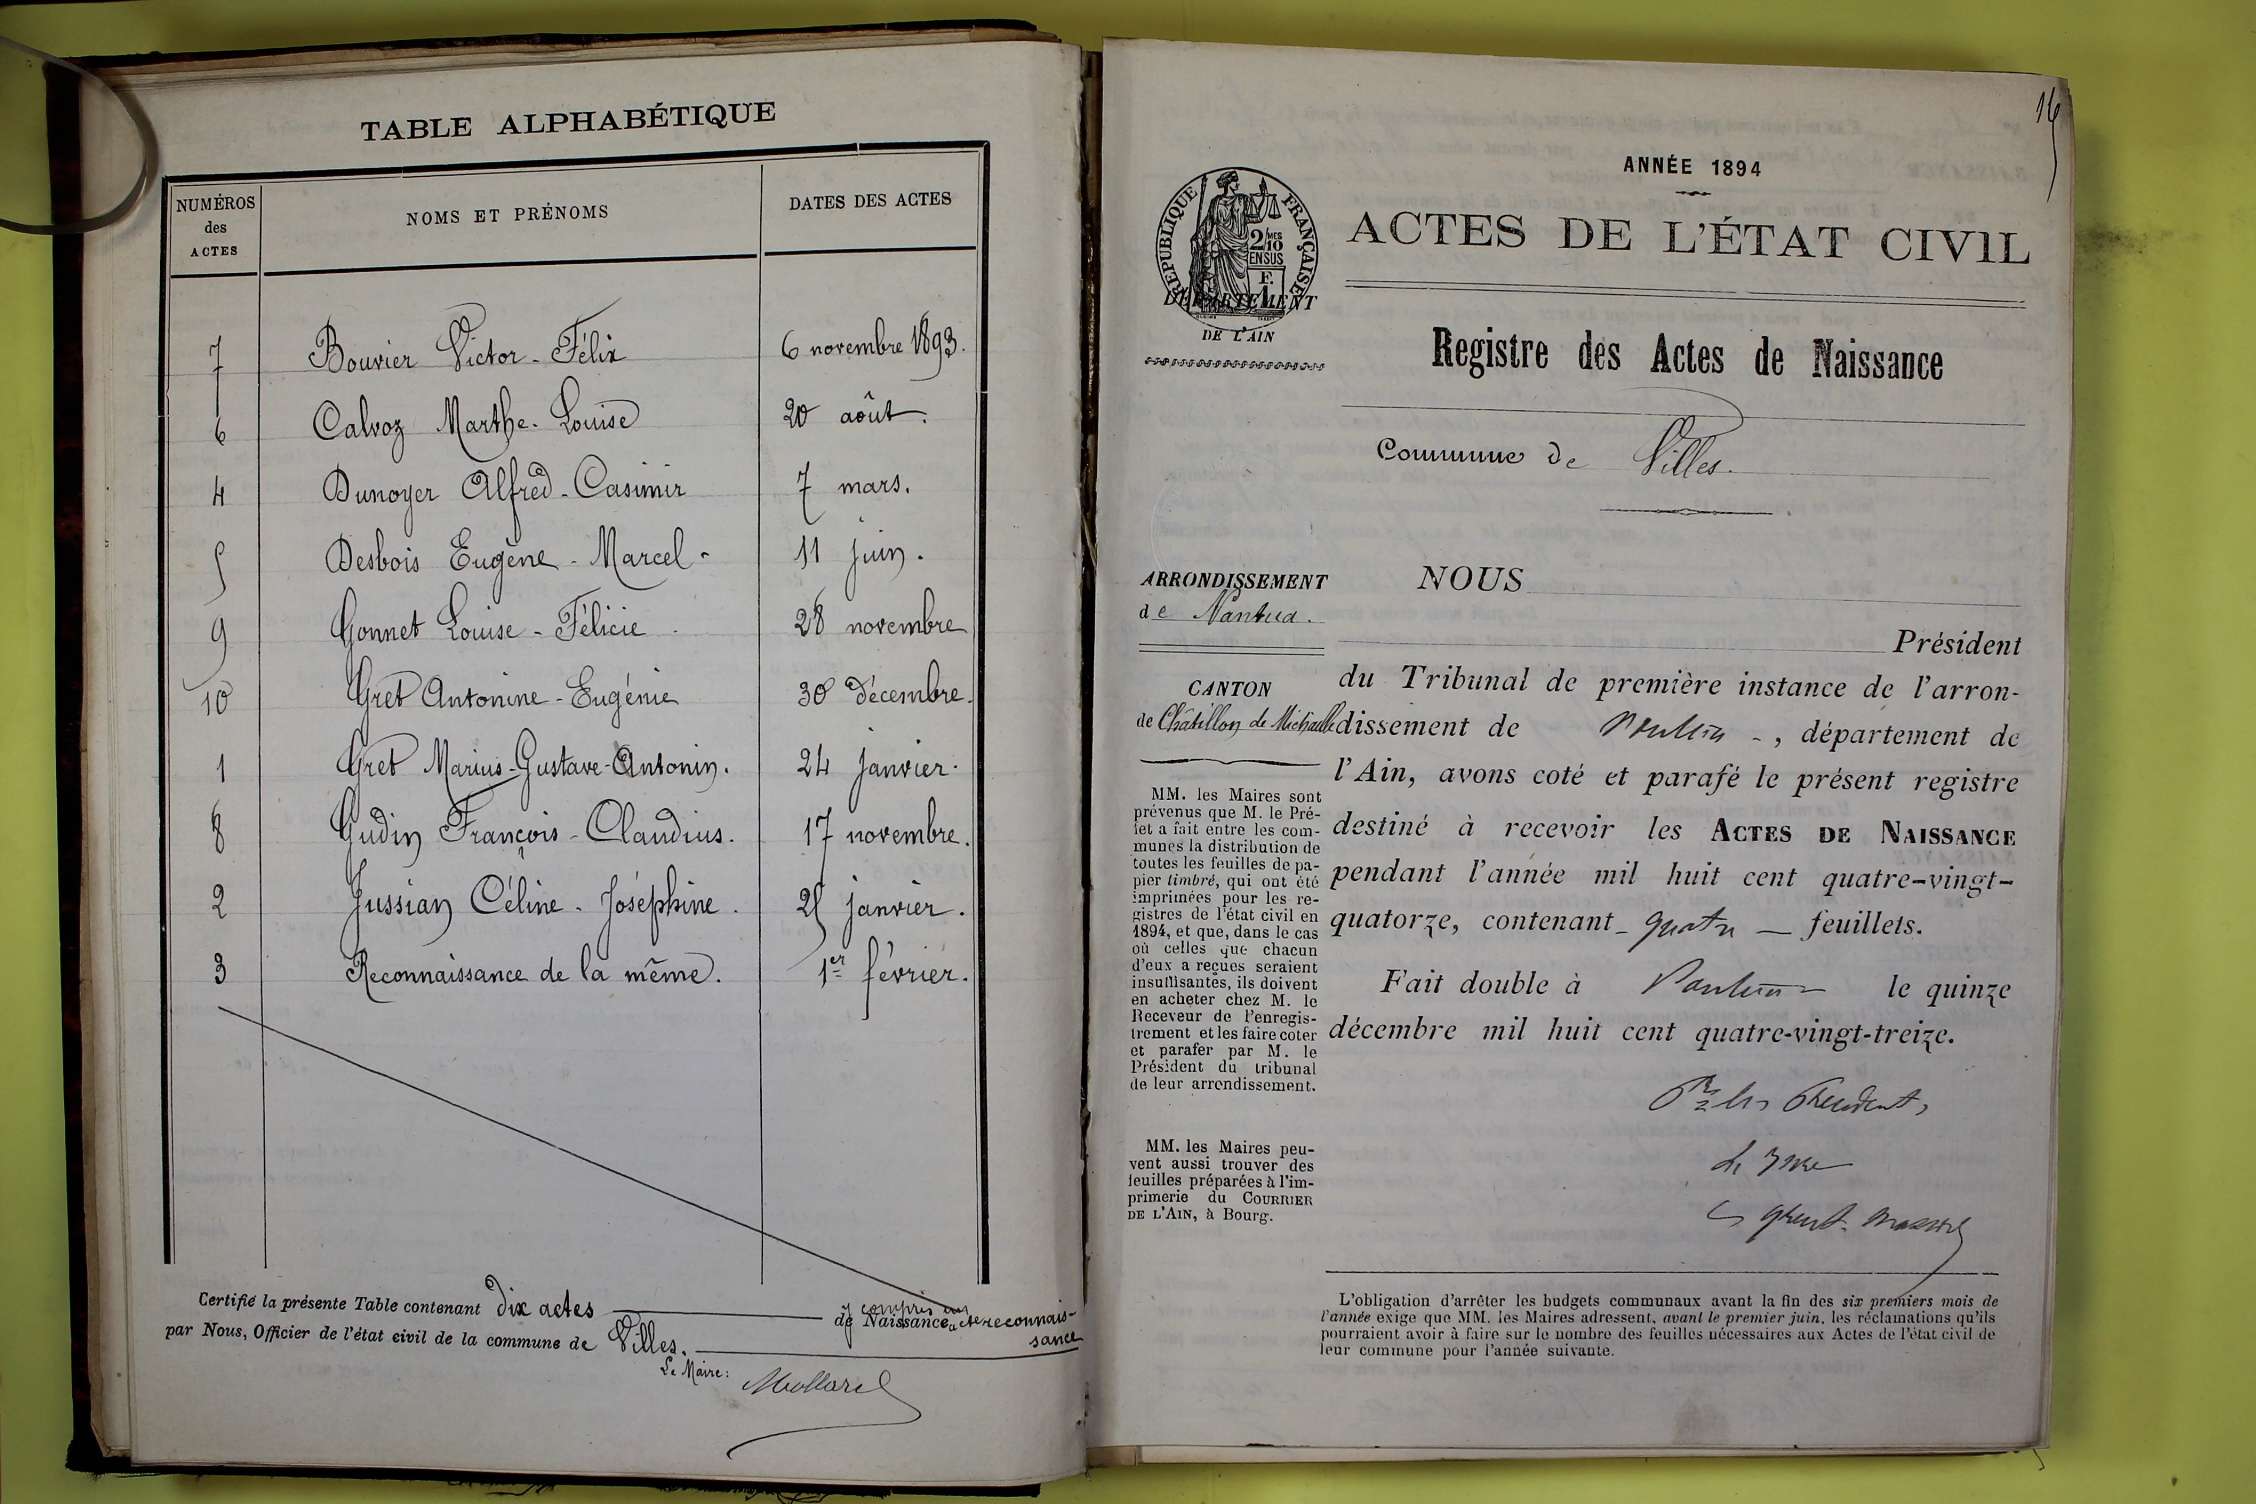 TABLE ALPHABÉTIQUE
NUMÉROS des ACTES
NOMS ET PRÉNOMS
DATES DES ACTES
7 Bouvier Victor-Félix 6 novembre 1893.
6 Calvoz Marthe-Louise 20 août.
4 Dunoyer Alfred-Casimir 7 mars.
5 Desbois Eugène-Marcel- 11 juin.
9 Gonnet Louise-Félicie. 28 novembre
10 Gret Antonine-Eugénie 30 décembre.
1 Gret Marius-Gustave-Antonin. 24 janvier.
8 Gudin François-Claudius. 17 novembre.
2 Jussian Céline-Joséphine. 25 janvier.
3 Reconnaissance de la même. 1er février.
Certifié la présente Table contenant dix actes de Naissance y compris un acte reconnaissance
par Nous, Officier de l'état civil de la commune de Villes.
Le Maire:
Mollard
ANNÉE 1894
RÉPUBLIQUE FRANÇAISE
2/10 MES
EN SUS
F. 1
ACTES DE L'ÉTAT CIVIL
DÉPARTEMENT
DE L'AIN
Registre des Actes de Naissance
Commune de Villes.
ARRONDISSEMENT
de Nantua.
CANTON
de Châtillon de Michaille
MM. les Maires sont
prévenus que M. le Pré-
fet a fait entre les com-
munes la distribution de
toutes les feuilles de pa-
pier timbré, qui ont été
imprimées pour les re-
gistres de l'état civil en
1894, et que, dans le cas
où celles que chacun
d'eux a reçues seraient
insuffisantes, ils doivent
en acheter chez M. le
Receveur de l'enregis-
trement et les faire coter
et parafer par M. le
Président du tribunal
de leur arrondissement.
MM. les Maires peu-
vent aussi trouver des
feuilles préparées à l'im-
primerie du COURRIER
DE L'AIN, à Bourg.
NOUS
Président
du Tribunal de première instance de l'arron-
dissement de Nantua -, département de
l'Ain, avons coté et parafé le présent registre
destiné à recevoir les ACTES DE NAISSANCE
pendant l'année mil huit cent quatre-vingt-
quatorze, contenant quatre feuillets.
Fait double à Nantua le quinze
décembre mil huit cent quatre-vingt-treize.
Le Juge
L'obligation d'arrêter les budgets communaux avant la fin des six premiers mois de
l'année exige que MM. les Maires adressent, avant le premier juin, les réclamations qu'ils
pourraient avoir à faire sur le nombre des feuilles nécessaires aux Actes de l'état civil de
leur commune pour l'année suivante.